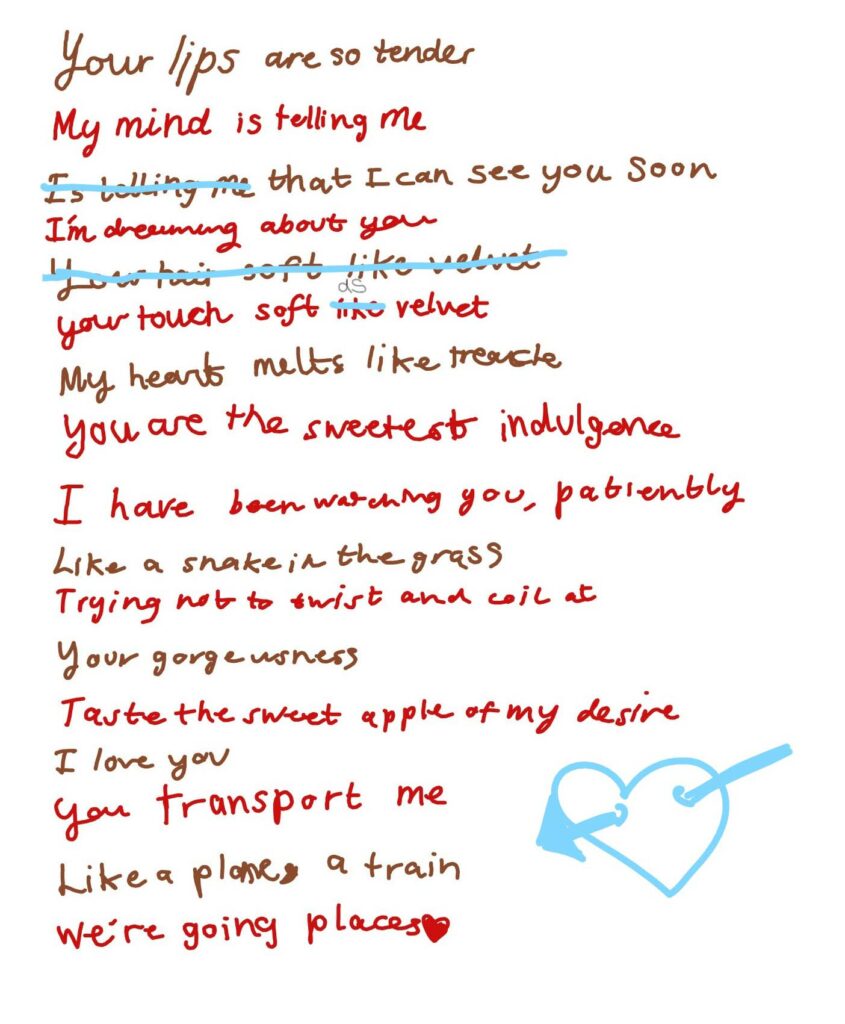 Your lips are so tender
My mind is telling me
Is telling me that I can see you soon
I'm dreaming about you
Your hair soft like velvet
as
your touch soft like velvet
My heart melts like treacle
You are the sweetest indulgence
I have been watching you, patiently
Like a snake in the grass
Trying not to twist and coil at
Your gorgeusness
Taste the sweet apple of my desire
I love you
You transport me
Like a plane, a train
We're going places